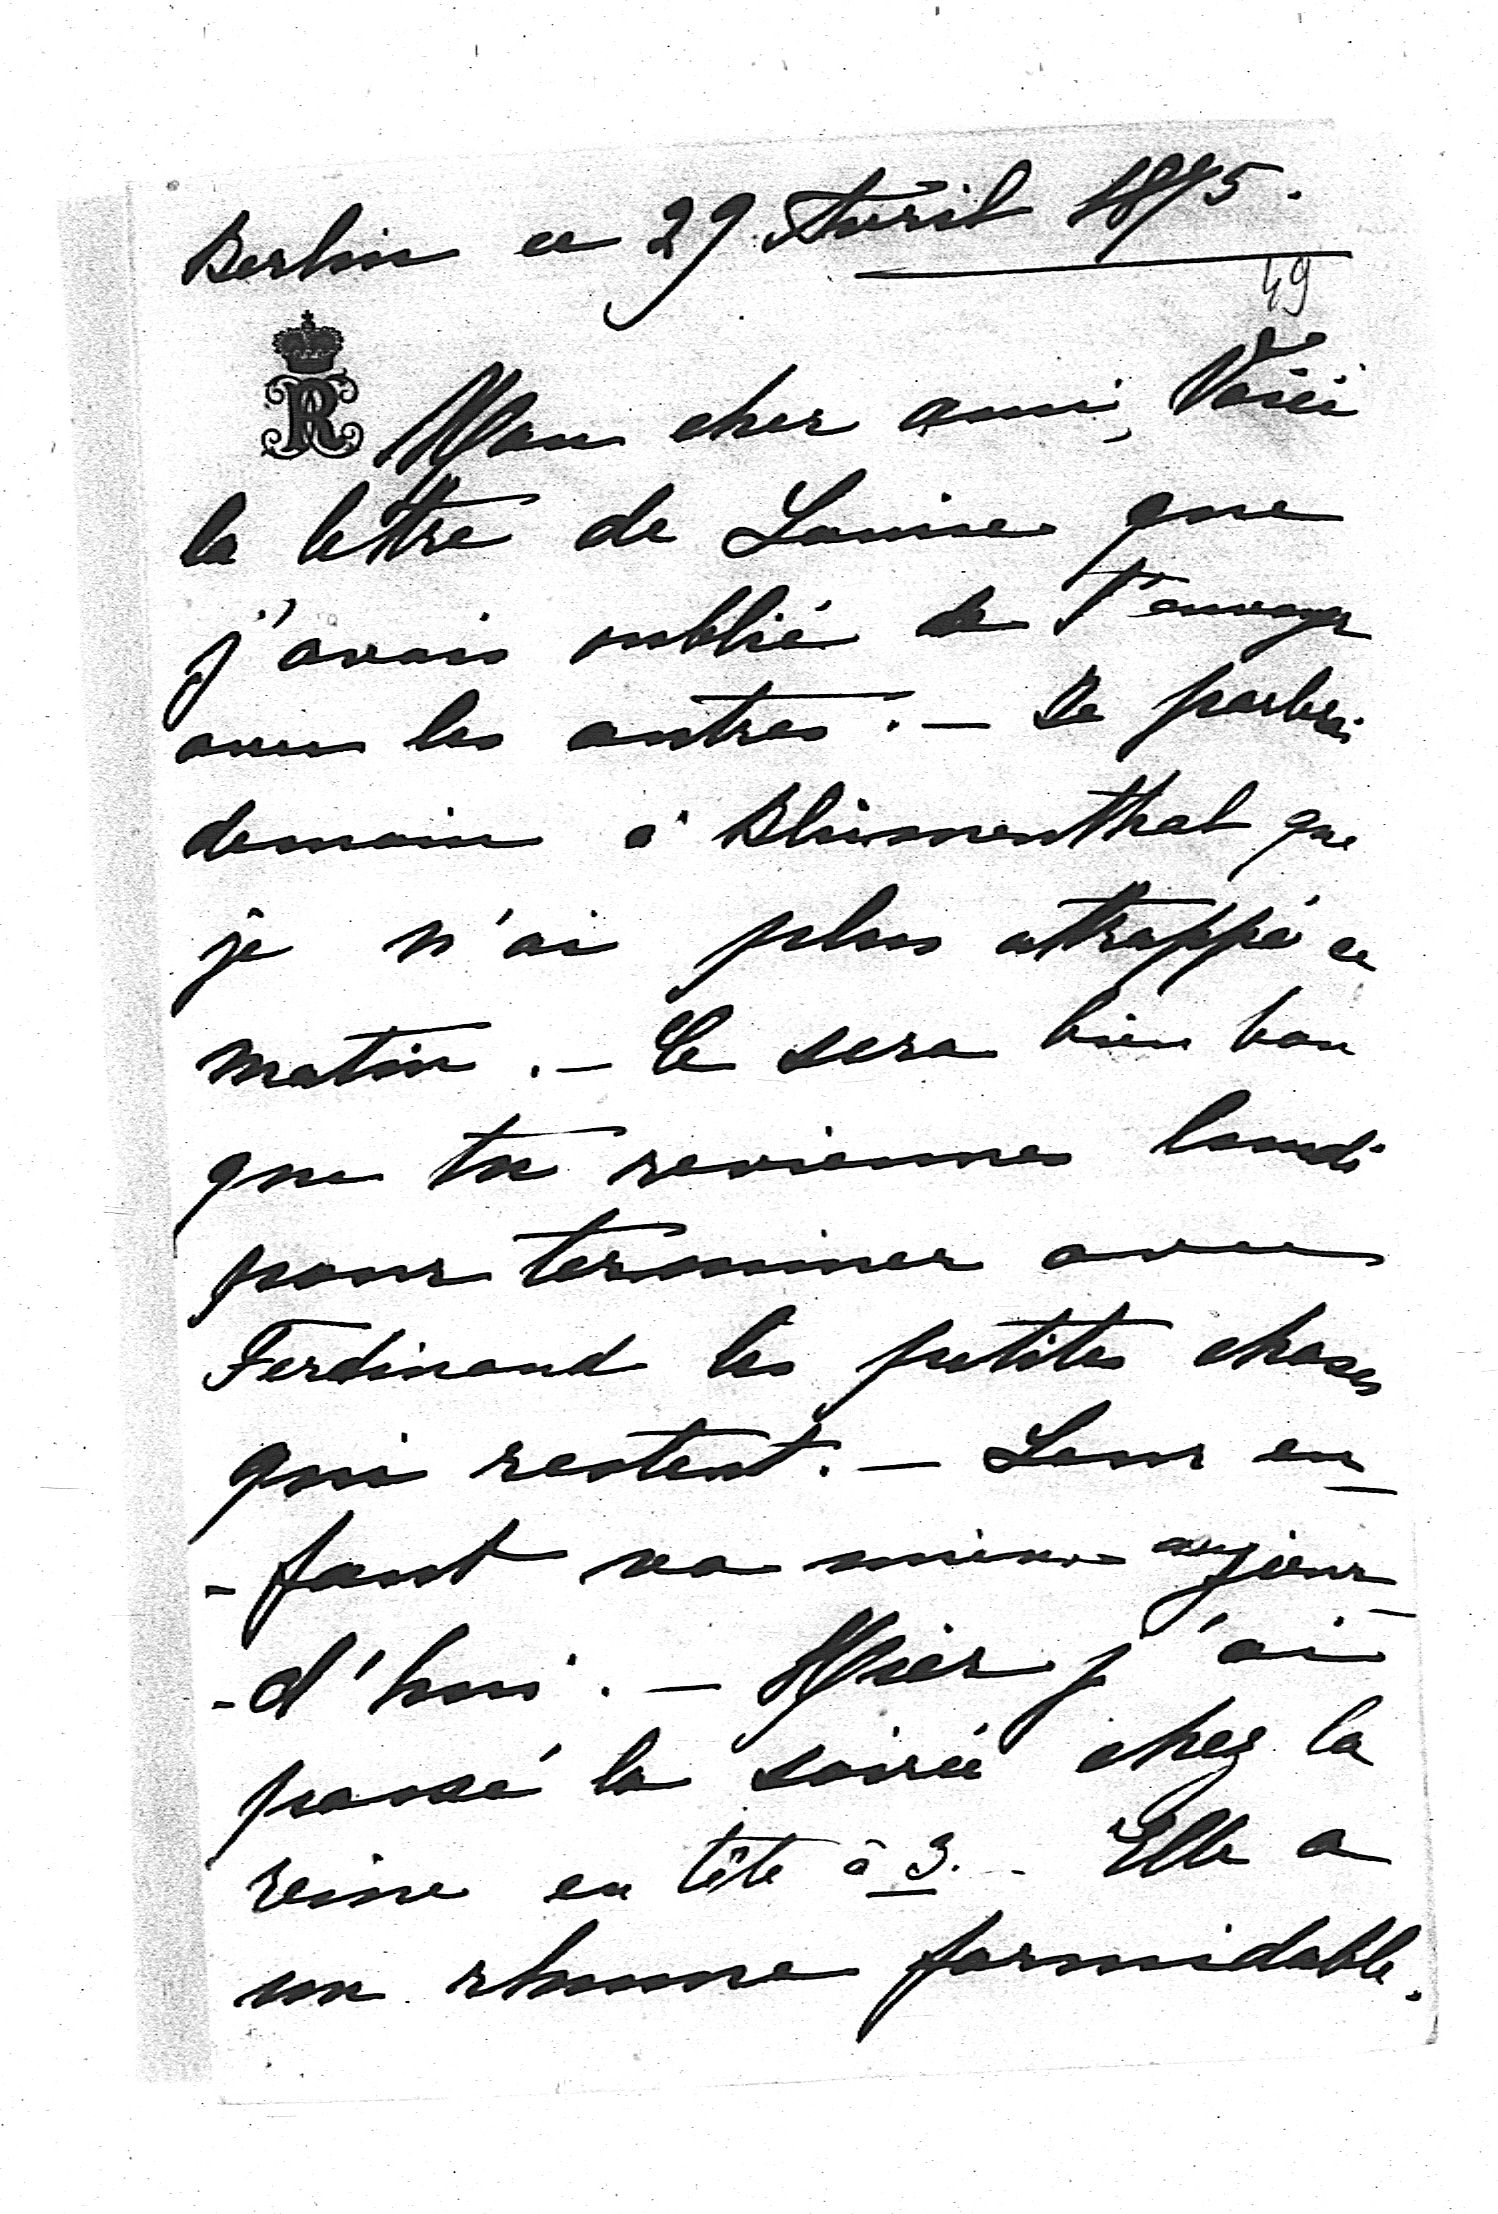 Berlin ce 29 Avril 1895.
49
R Mon cher ami, Voici
la lettre de Louise que
j'avais oublié de t'envoyer
avec les autres. — Je parlerai
demain à Blumenthal que
je n'ai plus attrappé ce
matin. — Ce sera bien bon
que tu reviennes lundi
pour terminer avec
Ferdinand les petites choses
qui restent. — Leur en-
-fant va mieux aujour-
-d'hui. — Hier j'ai
passé la soirée chez la
reine en tête à 3. - Elle a
un rhume formidable.